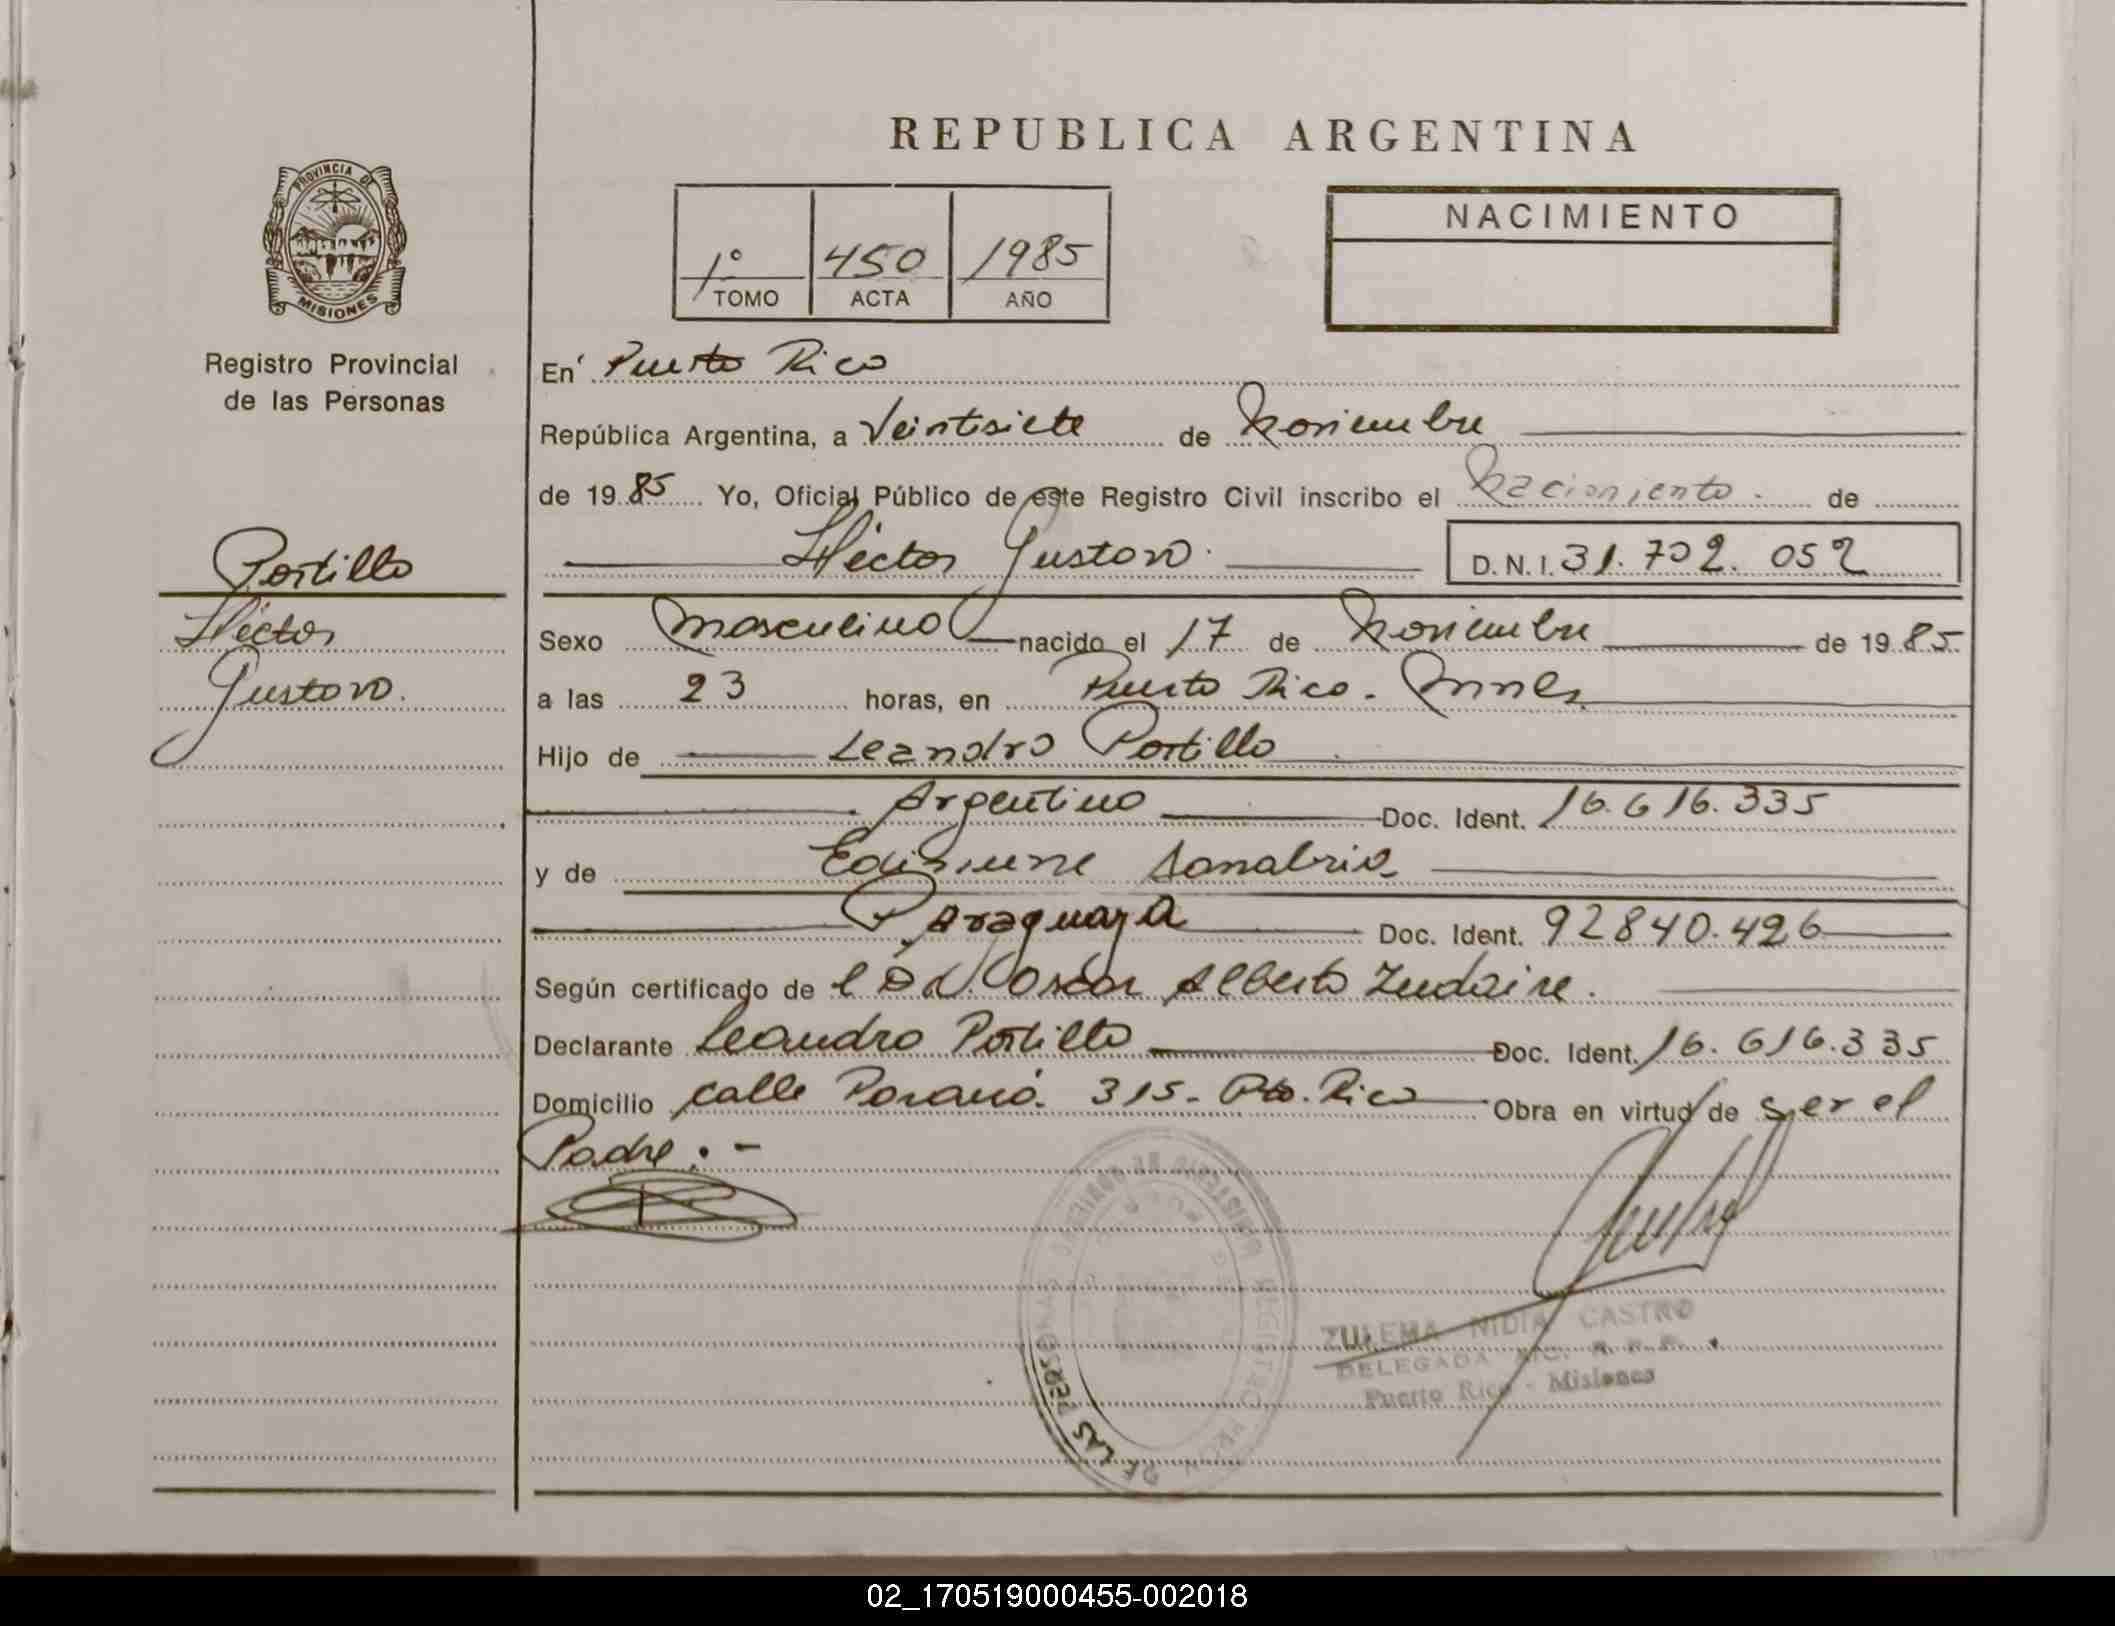 REPUBLICA ARGENTINA
PROVINCIA DE
MISIONES
Registro Provincial
de las Personas
1° 450 1985
TOMO ACTA AÑO
NACIMIENTO
En Puerto Rico
República Argentina, a Veintisiete de Noviembre
de 1985 Yo, Oficial Público de este Registro Civil inscribo el Nacimiento de
Héctor Gustavo D.N.I. 31.702.052
Portillo
Héctor
Gustavo.
Sexo Masculino nacido el 17 de Noviembre de 1985
a las 23 horas, en Puerto Rico - Mnes
Hijo de Leandro Portillo
Argentino Doc. Ident. 16.616.335
y de Sanabria
Paraguaya Doc. Ident. 92840.426
Según certificado de el Dr. Oscar Alberto Zudaire.
Declarante Leandro Portillo Doc. Ident. 16.616.335
Domicilio calle Paraná 315 - Pto. Rico Obra en virtud de ser el
Padre. -
MINISTERIO DE GOBIERNO
REGISTRO PROV. DE LAS PERSONAS
ZULEMA NIDIA CASTRO
DELEGADA R. P. P.
Puerto Rico - Misiones
02_170519000455-002018